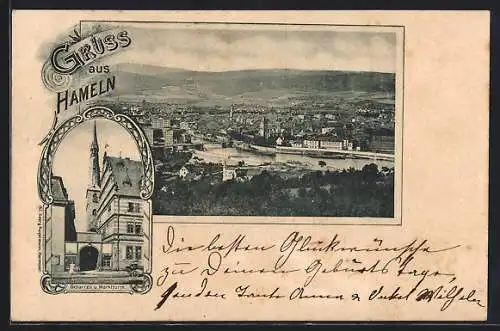 GRUSS
aus
HAMELN
u. Marktturm.
Die besten Glückwünsche
zu Deinem Geburtstage,
senden Tante Anna & Onkel Wilhelm